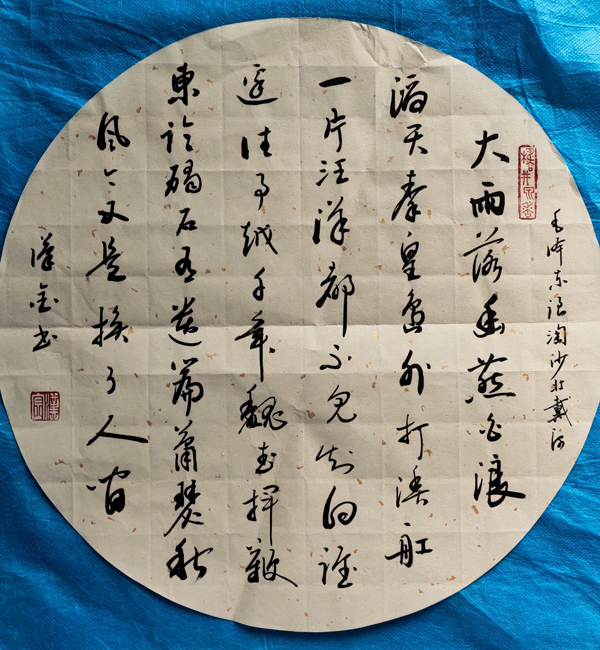 毛泽东浪淘沙北戴河
大雨落幽燕白浪
滔天秦皇島外打漁船
一片汪洋都不见知向谁
邊往事越千年魏武揮鞭
東临碣石有遗篇萧瑟秋
風今又是换了人间
金书